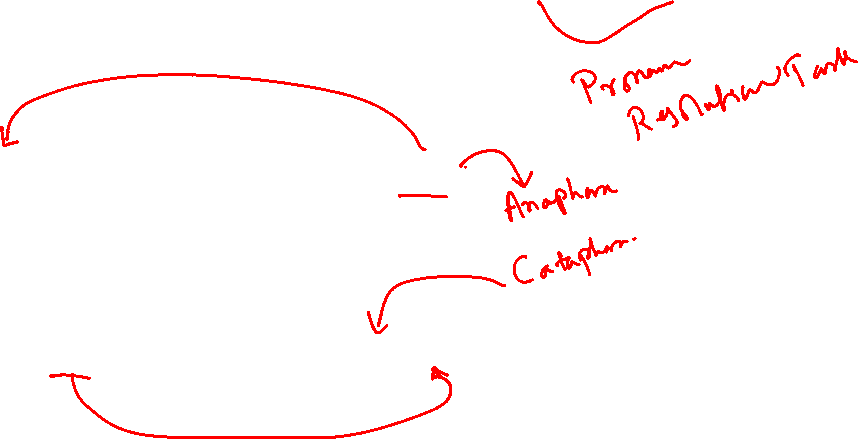 Pronoun
Resolution Task
Anaphora
Cataphora.